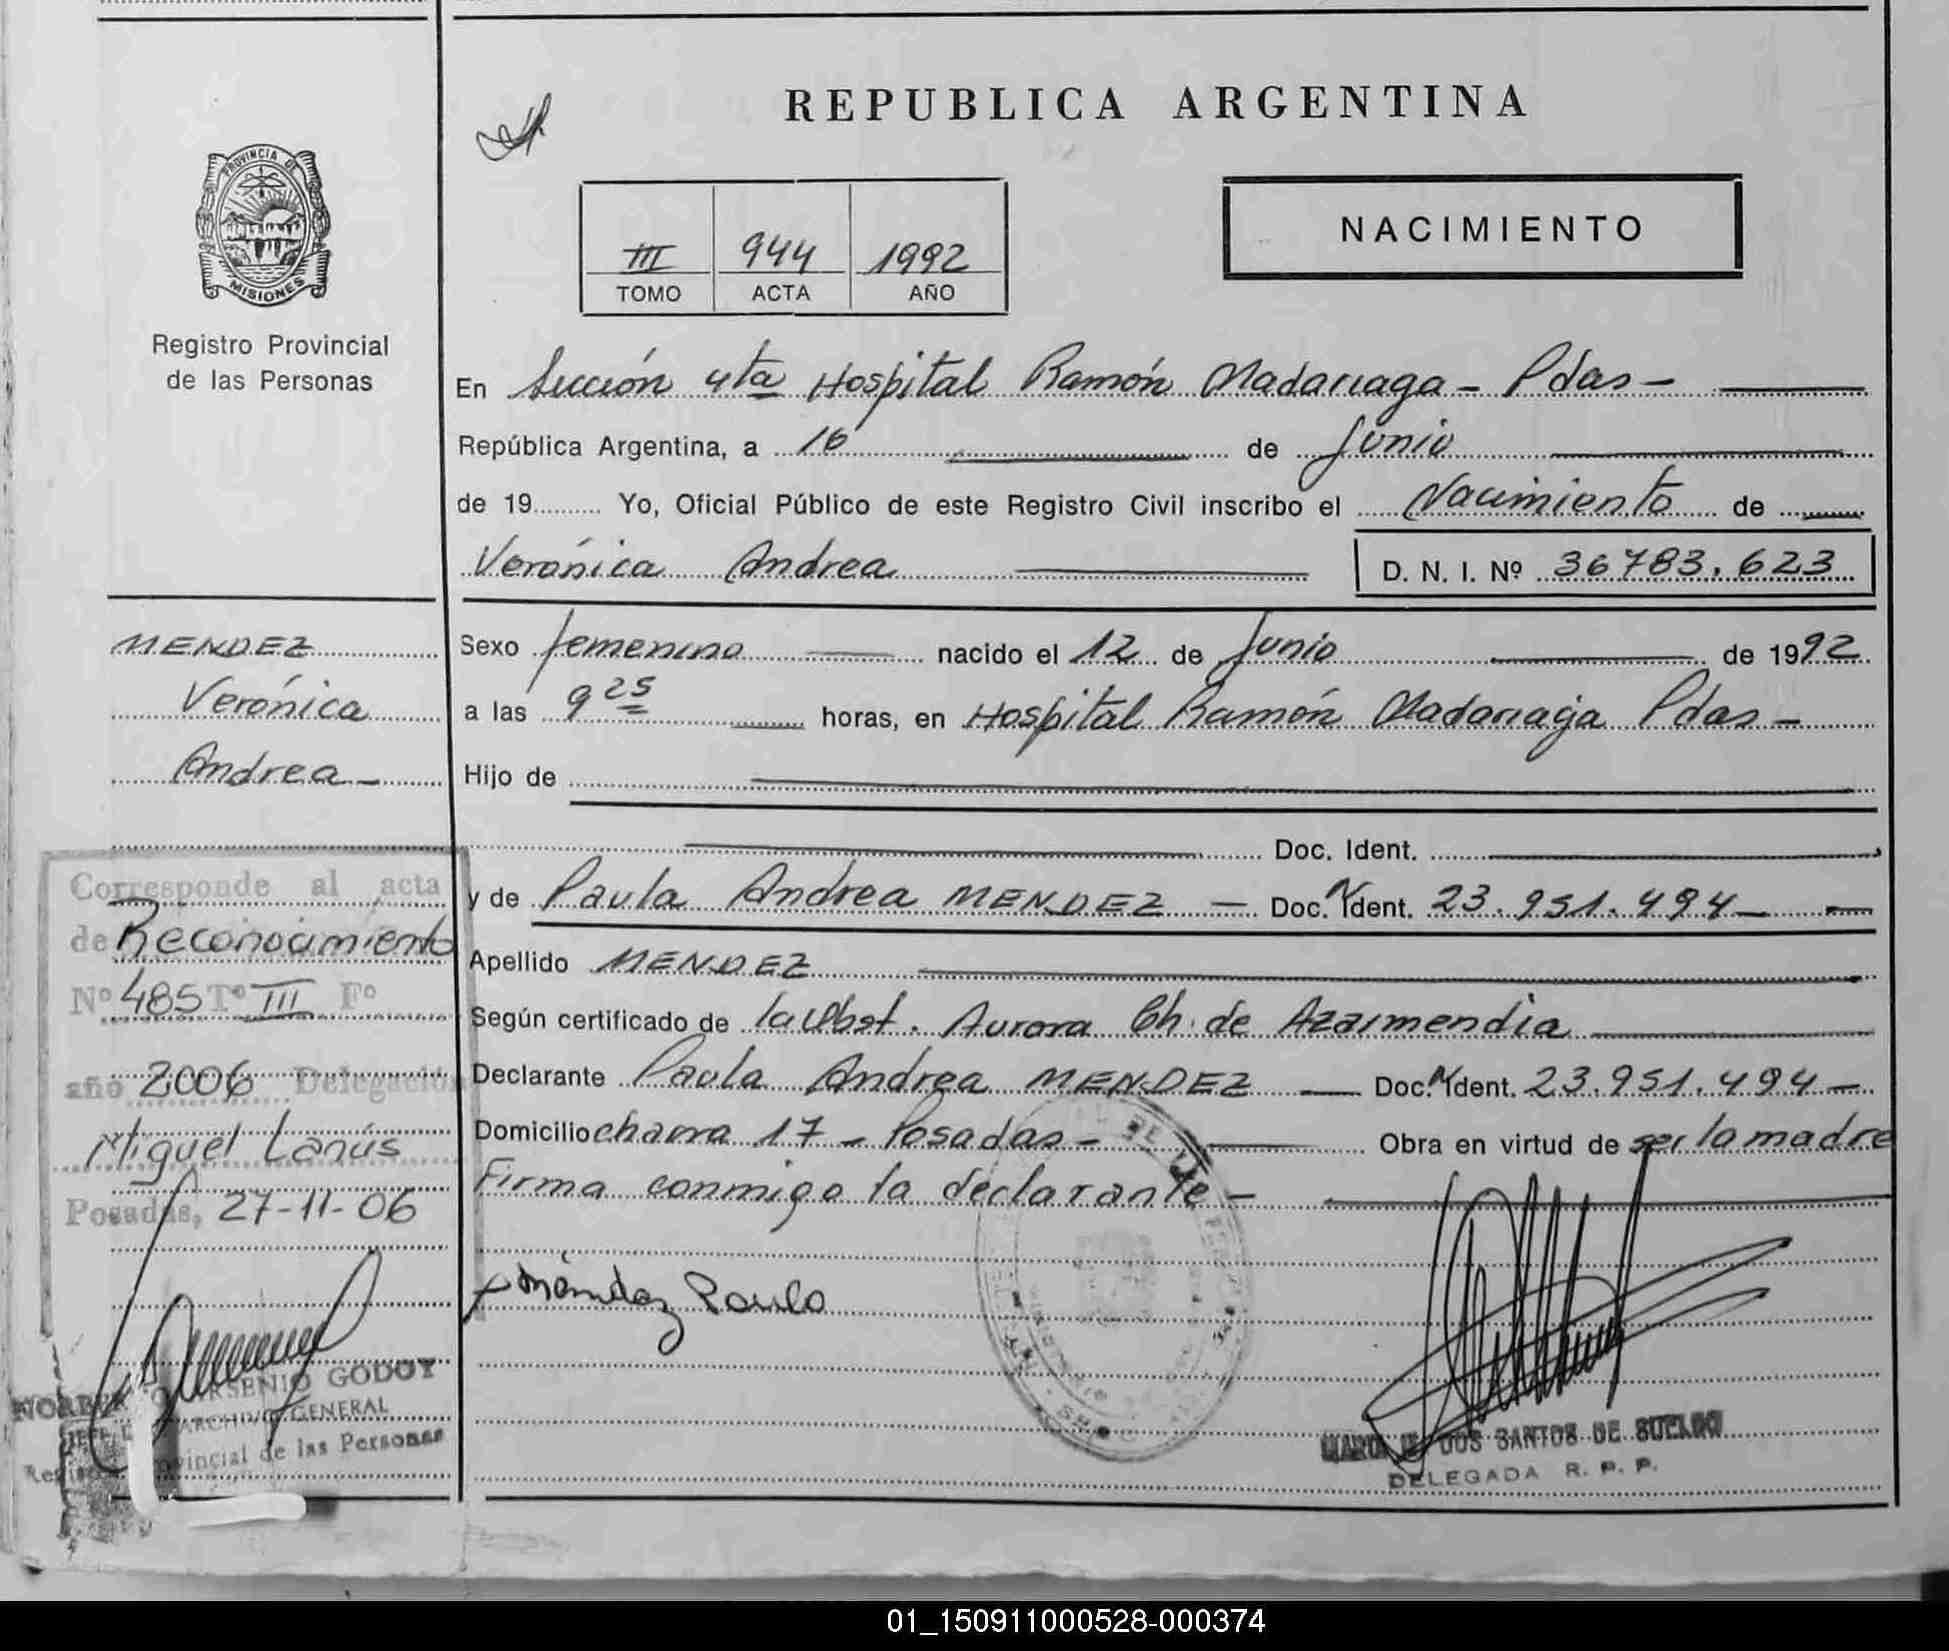 REPUBLICA ARGENTINA
PROVINCIA DE MISIONES
Registro Provincial
de las Personas
III 944 1992
TOMO ACTA AÑO
NACIMIENTO
En Sección 4ta Hospital Ramón Madariaga - Pdas -
República Argentina, a 16 de Junio
de 19 Yo, Oficial Público de este Registro Civil inscribo el Nacimiento de
Verónica Andrea D. N. I. Nº 36783.623
MENDEZ
Verónica
Andrea -
Sexo femenino nacido el 12 de Junio de 1992
a las 9 25 horas, en Hospital Ramón Madariaga Pdas -
Hijo de
Doc. Ident.
y de Paula Andrea MENDEZ - Doc. N Ident. 23.951.494 -
Apellido MENDEZ
Según certificado de la Obst. Aurora Ch. de Azarmendia
Declarante Paula Andrea MENDEZ - Doc. N Ident. 23.951.494 -
Domicilio chacra 17 - Posadas - Obra en virtud de ser la madre
Firma conmigo la declarante -
Corresponde al acta
de Reconocimiento
Nº 485 Tº III Fº
año 2006 Delegación
Miguel Lanús
Posadas, 27-11-06
Méndez Paula
ARSENIO GODOY
ARCHIVO GENERAL
Provincial de las Personas
DOS SANTOS DE SUELDO
DELEGADA R. P. P.
01_150911000528-000374